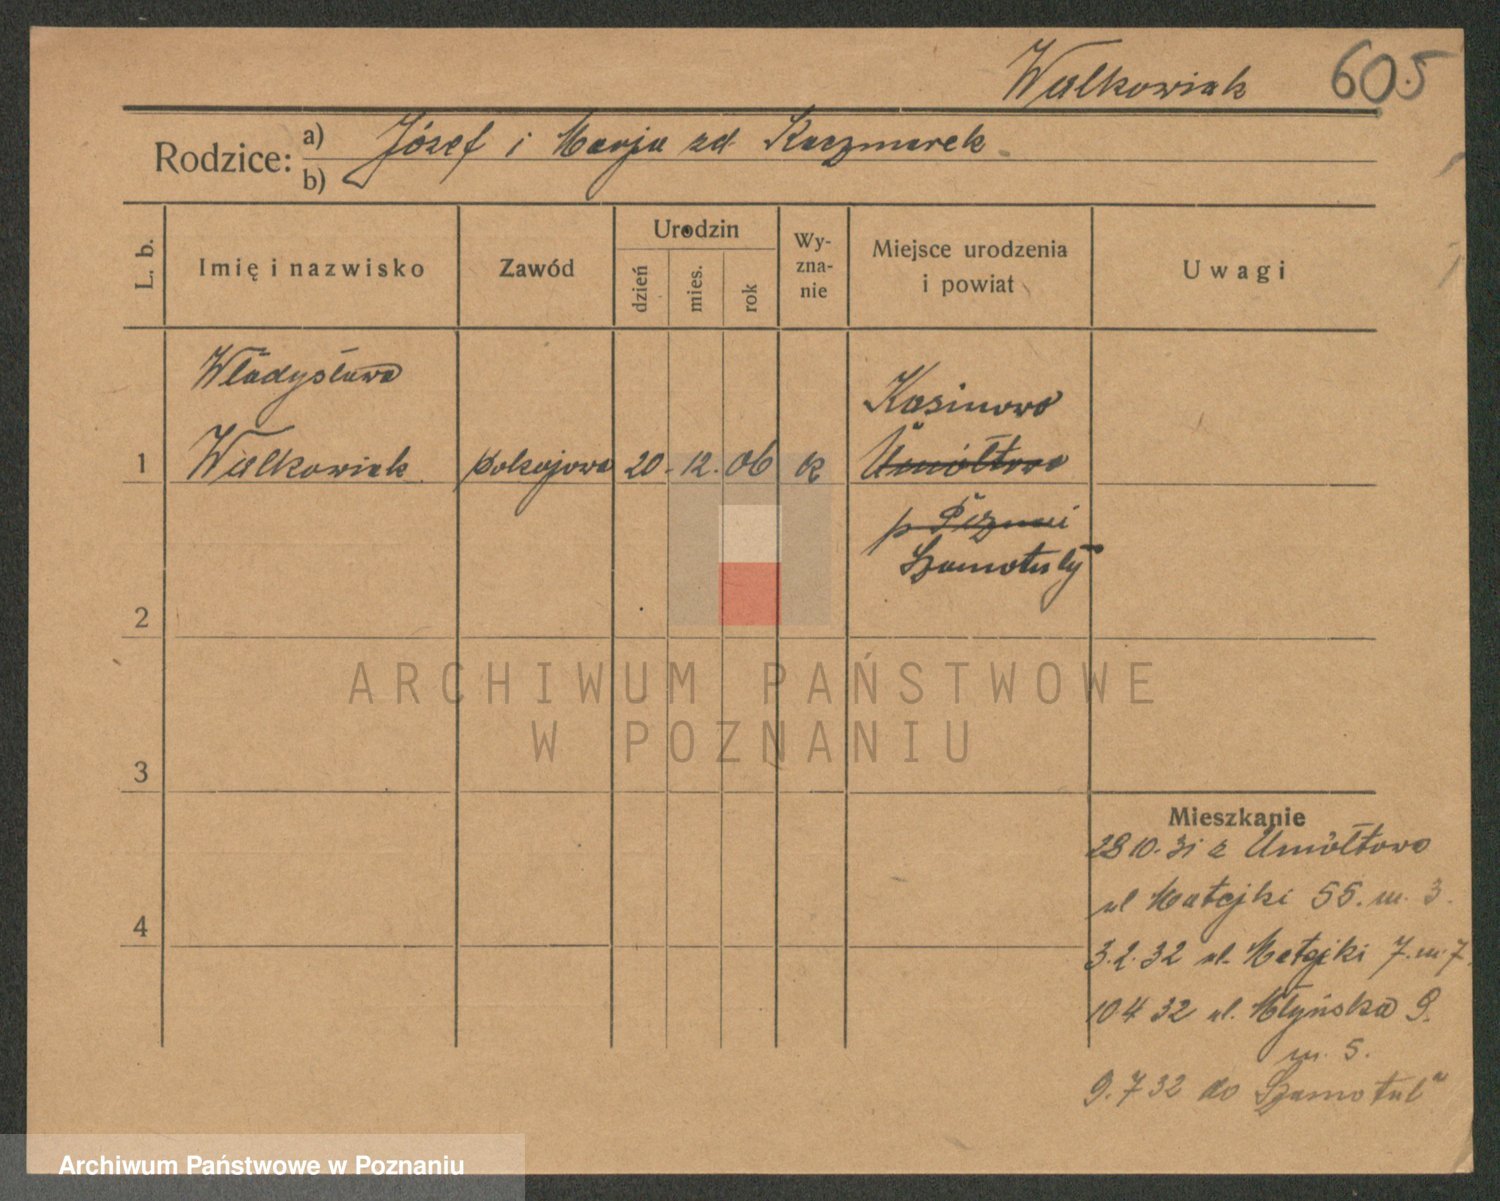 Walkowiak 605
Rodzice: a) Józef i Marja zd Kaczmarek
b)
L. b. Imię i nazwisko Zawód Urodzin dzień mies. rok Wy-zna-nie Miejsce urodzenia i powiat Uwagi
Władysława
Kasinowo
1 Walkowiak pokojowa 20. 12. 06 k Umółtowo
p Poznań
Szamotuły
2
3
4
Mieszkanie
28 10. 31 z Umółtowo
ul Matejki 55. m. 3.
3.2.32 ul. Matejki 7. m. 7.
10 4 32 ul. Młyńska 9.
m. 5.
9. 7 32 do Szamotuł
ARCHIWUM PAŃSTWOWE
W POZNANIU
Archiwum Państwowe w Poznaniu